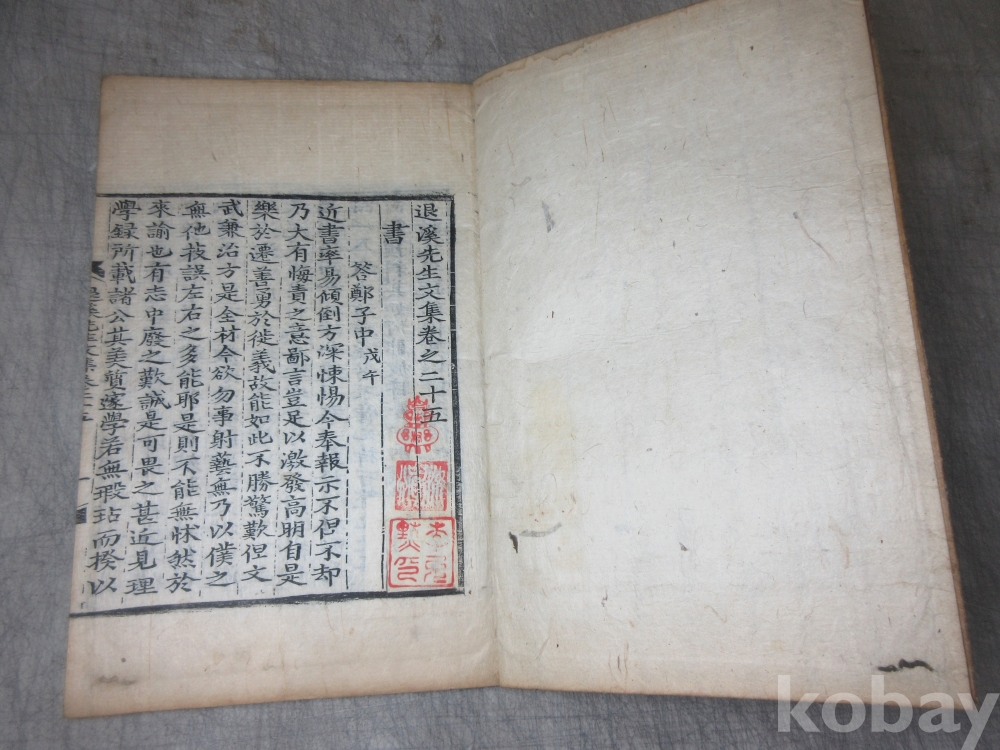 退溪先生文集卷之二十五
書
答鄭子中 戊午
近書率易傾倒方深悚惕今奉報示不但不却
乃大有悔責之意鄙言豈足以激發高明自是
樂於遷善勇於徙義故能如此不勝驚歎但文
武兼治方是全材今欲勿事射藝無乃以僕之
無他技誤左右之多能耶是則不能無怵然於
來諭也有志中廢之歎誠是可畏之甚近見理
學録所載諸公其美質邃學若無瑕玷而揆以
kobay